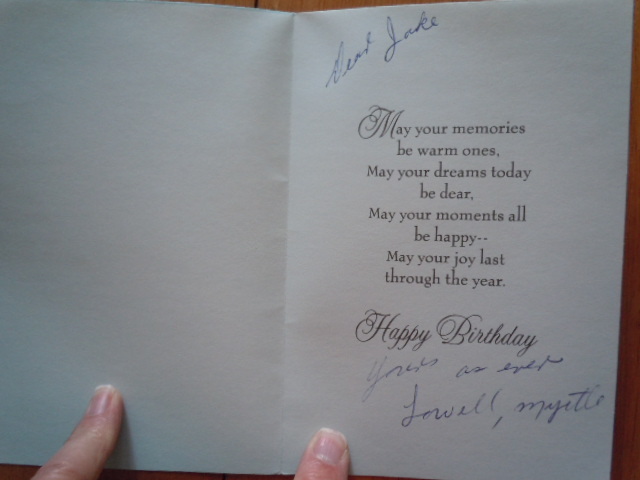 Dear Jake
May your memories
be warm ones,
May your dreams today
be dear,
May your moments all
be happy--
May your joy last
through the year.
Happy Birthday
Yours as ever
Lowell, Myrtle